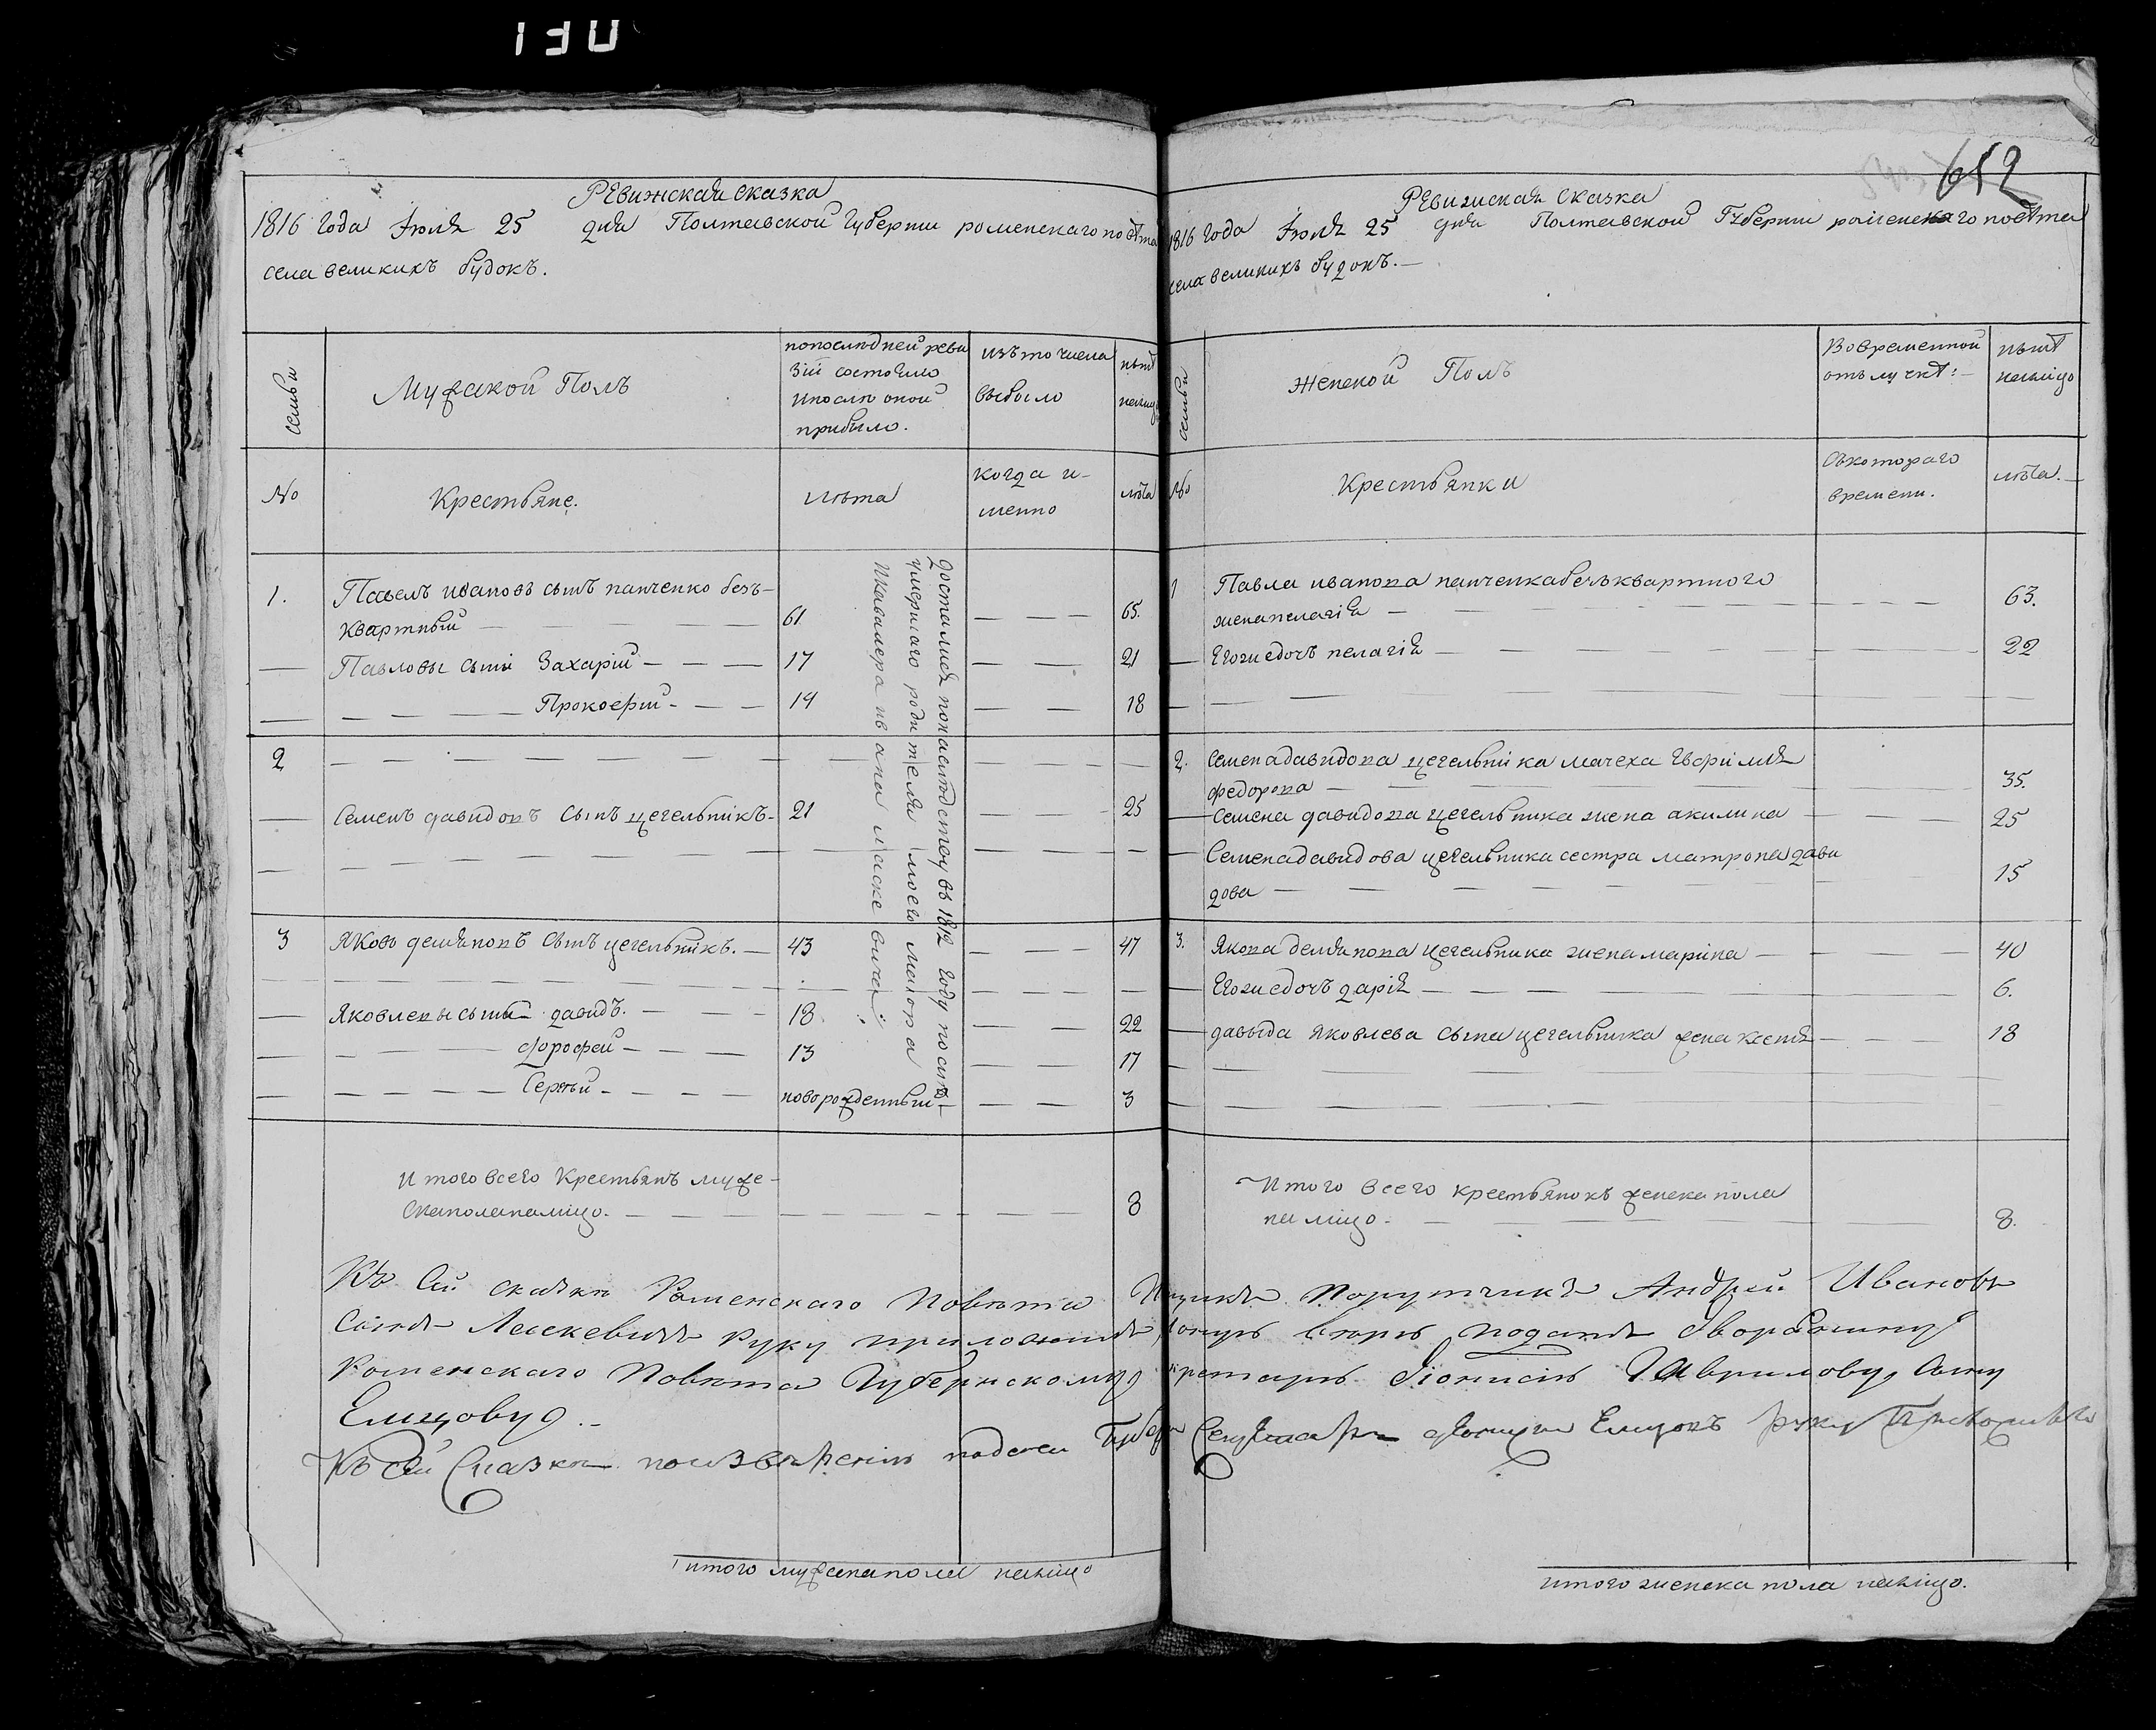 130
Ревижская сказка
1816 года Июля 25 дня Полтавской губернии роменскаго повѣта
села великихъ будокъ.
семьи
Мужской Полъ
попослѣдней реви
зіи состояло
ипослѣ оной
прибыло.
изътого числа
выбыло
нынѣ
налицо
№
Крестьяне.
лѣта
когда и-
менно
лѣта
1. Павелъ ивановъ сынъ панченко безъ-
квартный 61 65.
Павловы сыны Захарій 17 21
Прокофій 14 18
2
Семенъ давидовъ Сынъ цегельникъ 21 25
3 Яковъ демяновъ Сынъ цегельникъ. 43 47
Яковлевы сыны давидъ. 18 22
дорофей 13 17
Сергѣй новорожденный 3
досталися понаслѣдству въ 1812 году послѣ
умершаго родителя моего маиора
икавалера ивана маскевича
И того всего Крестьянъ муже-
ска пола налицо. 8
Ревизская Сказка
652
1816 года Июля 25 дня Полтавской Губернии роменскаго повѣта
села великихъ будокъ.
семьи
Женской Полъ
Вовременной
отълучкѣ:
нынѣ
налицо
№
Крестьянки
Съкотораго
времени.
лѣта.
1 Павла иванова панченка безъквартного
жена пелагія 63.
Егожъ дочь пелагія 22
2. Семена давидова цегельника мачеха Евфимия
федорова 35.
Семена давидова цегельника жена акилина 25
Семена давидова цегельника сестра матрона дави
дова 15
3. Якова демянова цегельника жена марина 40
Егожъ дочь дарія 6.
давыда Яковлева сына цегельника жена ксенія 18
Итого всего крестьянокъ женска пола
на лицо. 8.
Къ Сей сказкѣ Роменскаго Повѣта Порутчикъ Андрей Ивановъ
Сынъ Маскевичъ руку приложилъ подать дворянину
Роменскаго Повѣта Губернскому Секретарю Діонисію Гаврилову Сыну
Емцову
Къ Сей Сказкѣ подачи Губер Секретарь Емцовъ руку Приложилъ
итого мужска пола налицо
итого женска пола налицо.